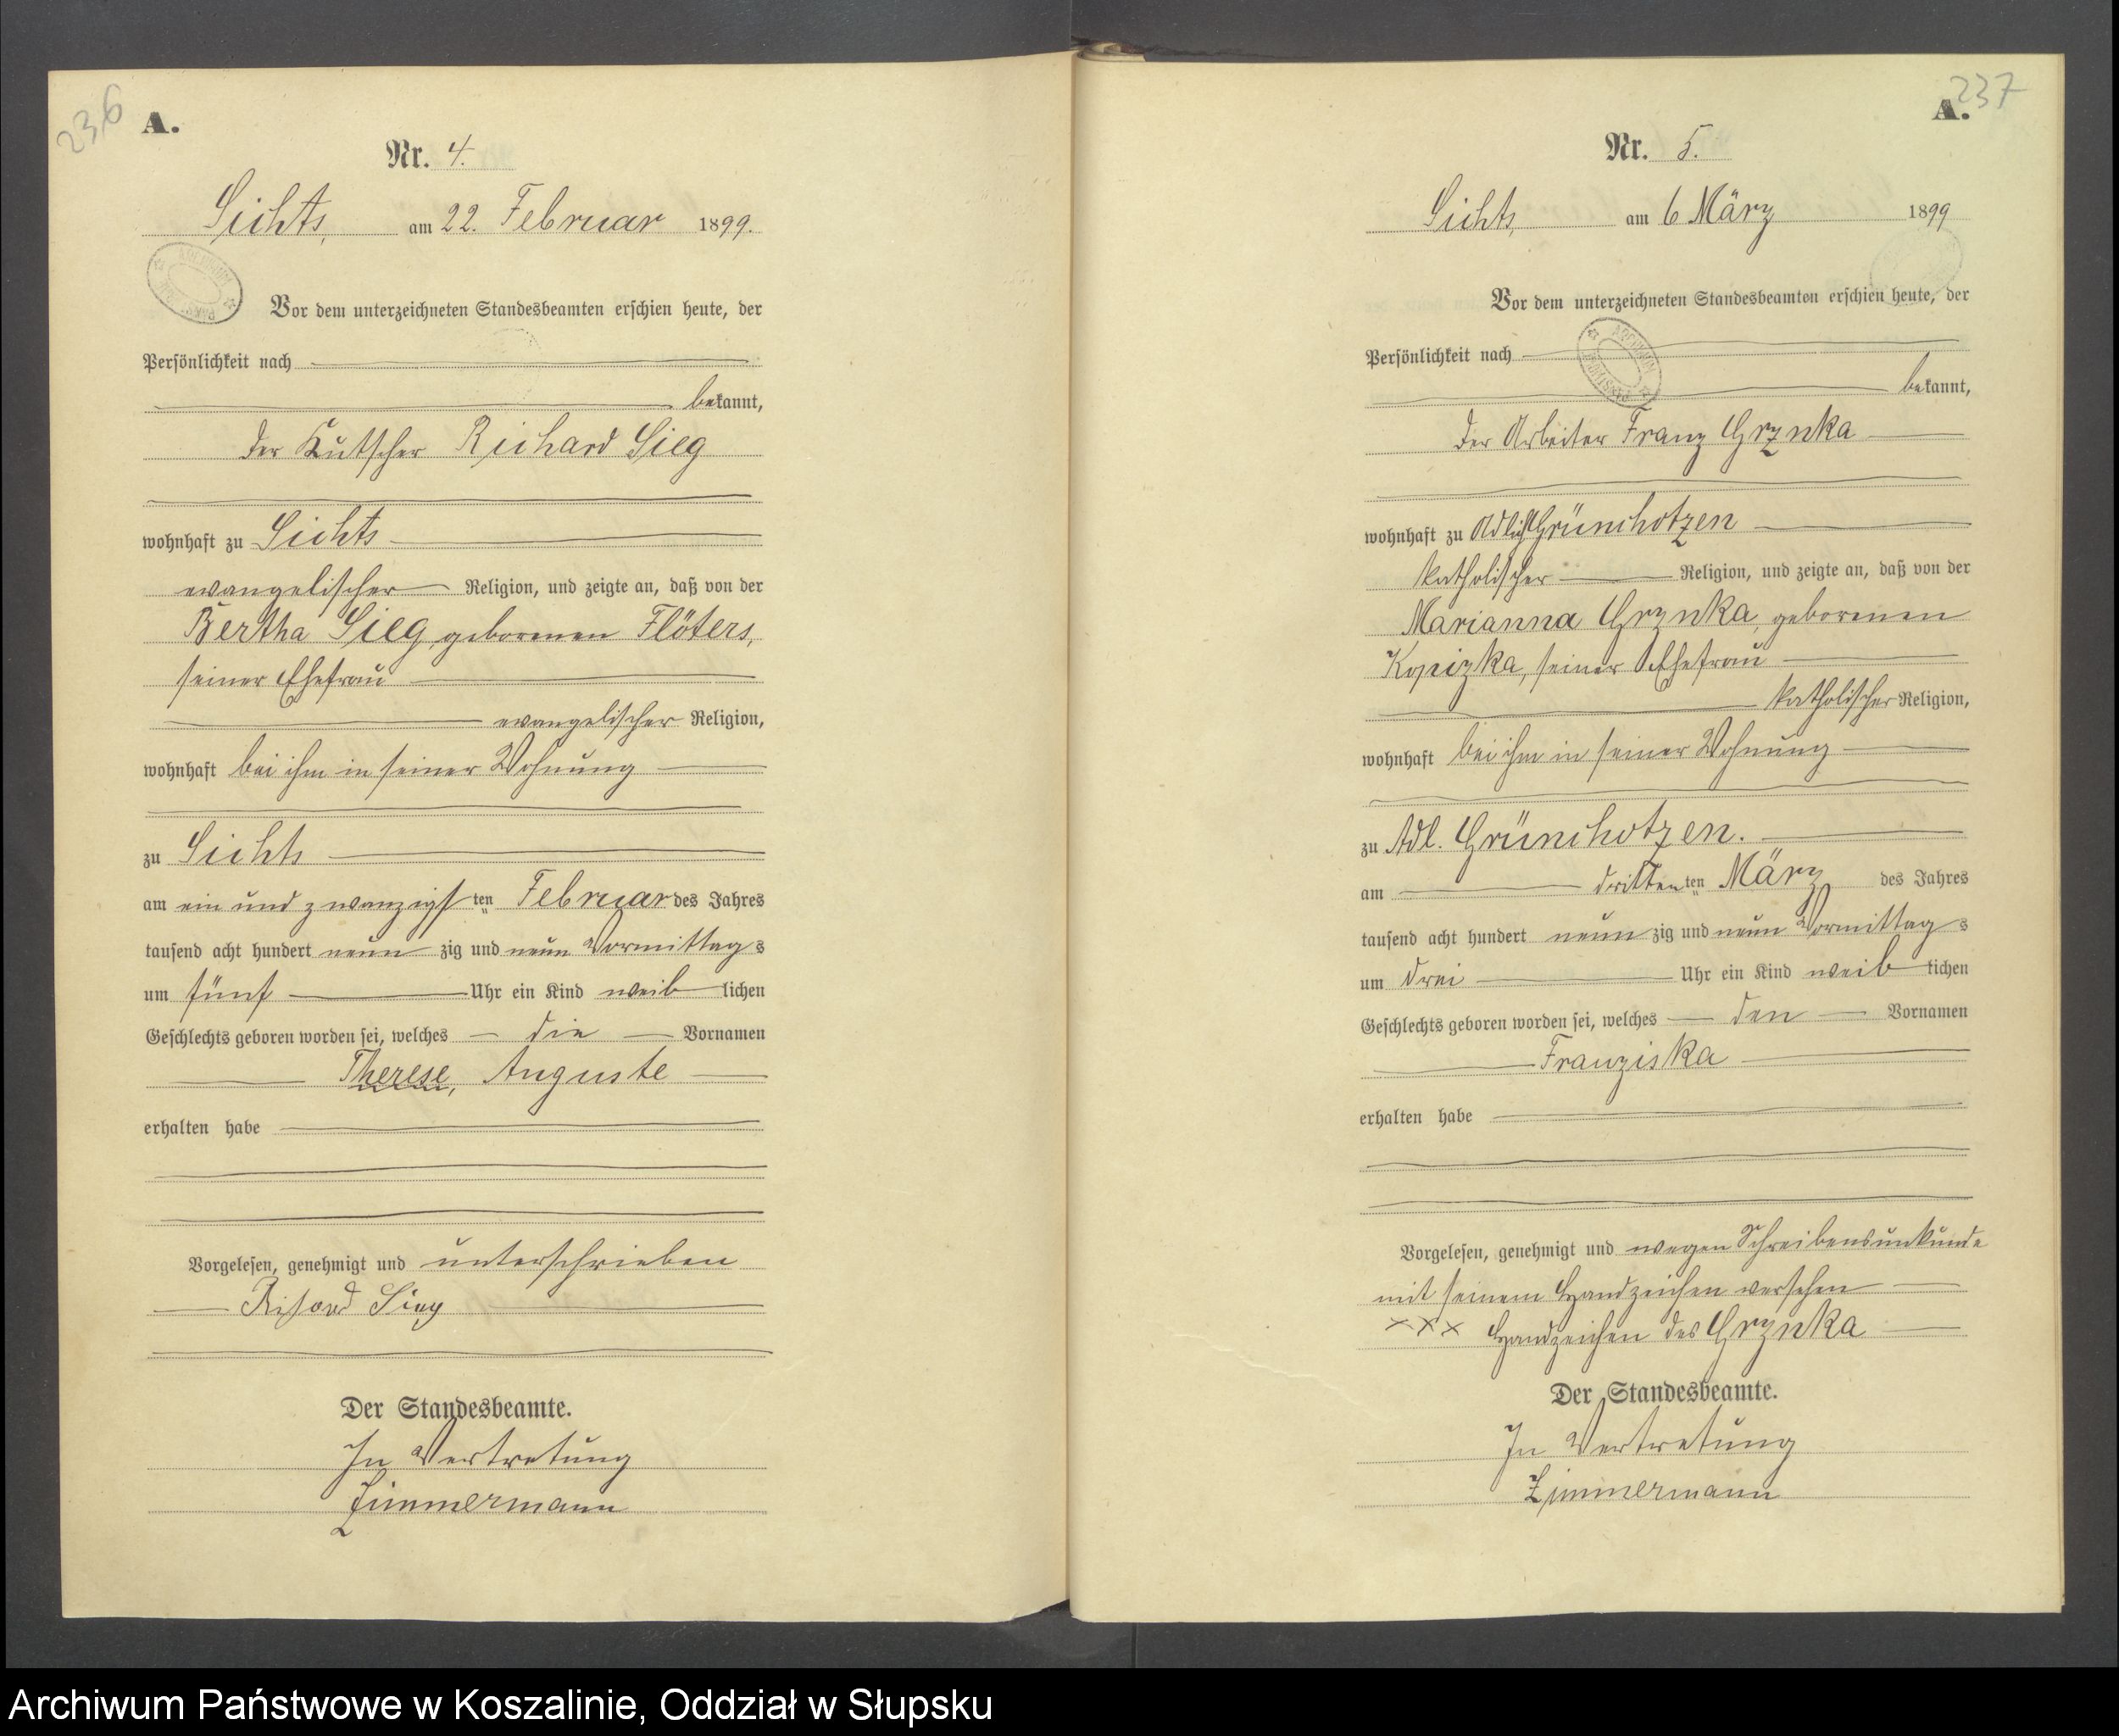 236
A.
Nr. 4.
Sichts, am 22. Februar 1899.
Vor dem unterzeichneten Standesbeamten erschien heute, der
Persönlichkeit nach
bekannt,
der Kutscher Richard Sieg
wohnhaft zu Sichts
evangelischer Religion, und zeigte an, daß von der
Bertha Sieg, geborenen Flöters,
seiner Ehefrau
evangelischer Religion,
wohnhaft bei ihm in seiner Wohnung
zu Sichts
am ein und zwanzigsten Februar des Jahres
tausend acht hundert neunzig und neun Vormittags
um fünf Uhr ein Kind weiblichen
Geschlechts geboren worden sei, welches die Vornamen
Therese, Auguste
erhalten habe
Vorgelesen, genehmigt und unterschrieben
Richard Sieg
Der Standesbeamte.
In Vertretung
Zimmermann
237
A.
Nr. 5.
Sichts, am 6 März 1899
Vor dem unterzeichneten Standesbeamten erschien heute, der
Persönlichkeit nach
bekannt,
der Arbeiter Franz Grznka
wohnhaft zu Adlich Grünchotzen
katholischer Religion, und zeigte an, daß von der
Marianna Grznka, geborenen
Kopizka, seiner Ehefrau
katholischer Religion,
wohnhaft bei ihm in seiner Wohnung
zu Adl. Grünchotzen.
am dritten ten März des Jahres
tausend acht hundert neunzig und neun Vormittags
um drei Uhr ein Kind weiblichen
Geschlechts geboren worden sei, welches den Vornamen
Franziska
erhalten habe
Vorgelesen, genehmigt und wegen Schreibensunkunde
mit seinem Handzeichen versehen
xxx Handzeichen des Grznka
Der Standesbeamte.
In Vertretung
Zimmermann
Archiwum Państwowe w Koszalinie, Oddział w Słupsku